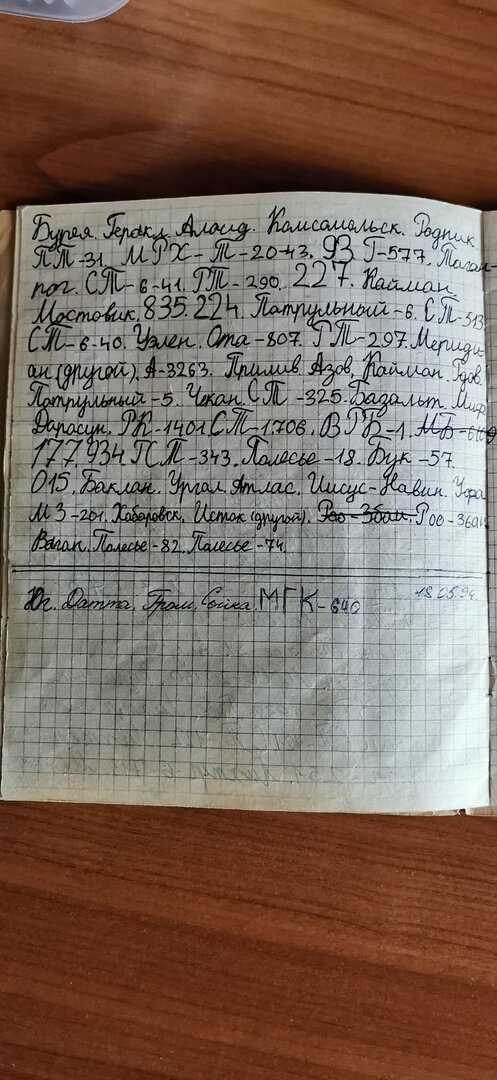 Бурея. Геракл. Алаид. Комсомольск. Родник.
ПТ-31. МРХ-Т-2043. 93. Т-577. Таган-
рог. СТ-6-41. РТ-290. 227. Кайман.
Мостовик. 835. 224. Патрульный-6. СТ-513
СТ-6-40. Уэлен. Ота-807. РТ-297. Мериди-
ан (другой). А-3263. Прилив. Азов, Кайман. Гдов.
Патрульный-5. Чекан. СТ-325. Базальт. Миф
Дарасун. РК-1401. СТ-1706. ВРБ-1.
177. 934. ПСТ-343. Полесье-18. Бук-57.
015. Баклан. Ургал. Атлас. Иисус-Навин. Уфа
МЗ-201. Хабаровск. Исток (другой). Роо-Збан. Роо-Збан
Ваган. Полесье-82. Полесье-74.
Юг. Датта. Гром. Сойка. МГК-640 18.05.94.